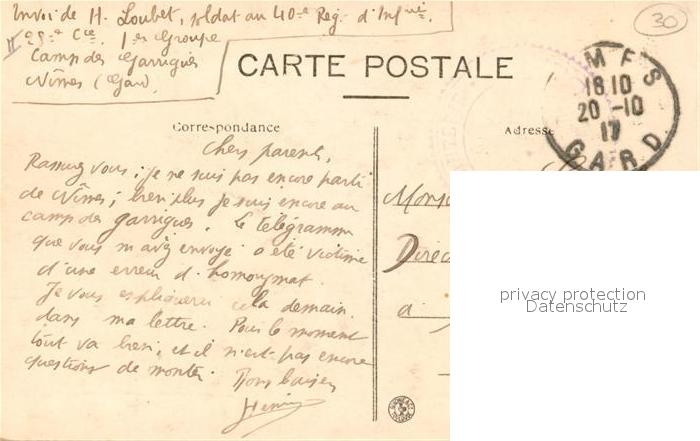 Envoi de H. Loubet, soldat au 40me Reg. d'Infrie.
25e Cie. 1er Groupe
Camp des Garrigues
Nîmes (Gard)
30
CARTE POSTALE
NIMES
18 10
20 -10
17
GARD
Correspondance
Adresse
Chers parents,
Rassurez vous; je ne suis pas encore parti
de Nîmes; bien plus je suis encore au
camp des garrigues. Le télégramme
que vous m'avez envoyé a été victime
d'une erreur d'homonymat.
Je vous expliquerai cela demain
dans ma lettre. Pour le moment
tout va bien, et il n'est pas encore
question de monter. Bons baisers
Henri
Monsi
Direc
à
privacy protection
Datenschutz